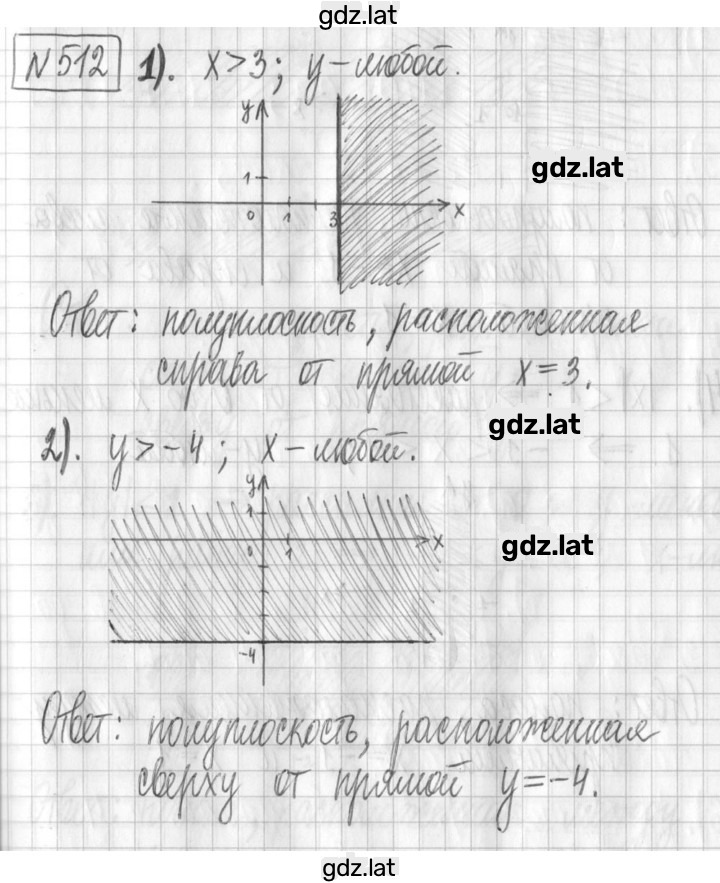 gdz.lat
№512 1). x>3; y-любой.
gdz.lat
y
1
0 1 3 x
Ответ: полуплоскость, расположенная
справа от прямой x=3.
gdz.lat
2). y>-4; x-любой.
y
1
gdz.lat
0 1 x
-4
Ответ: полуплоскость, расположенная
сверху от прямой y=-4.
gdz.lat